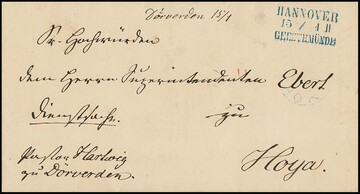 Dörverden 15/1
HANNOVER
15 / 1 II
GEESTEMÜNDE
Sr. Hochwürden
dem Herrn Superintendenten Ebert
Dienstsache. zu
Pastor Hartwig
zu Dörverden. Hoya.